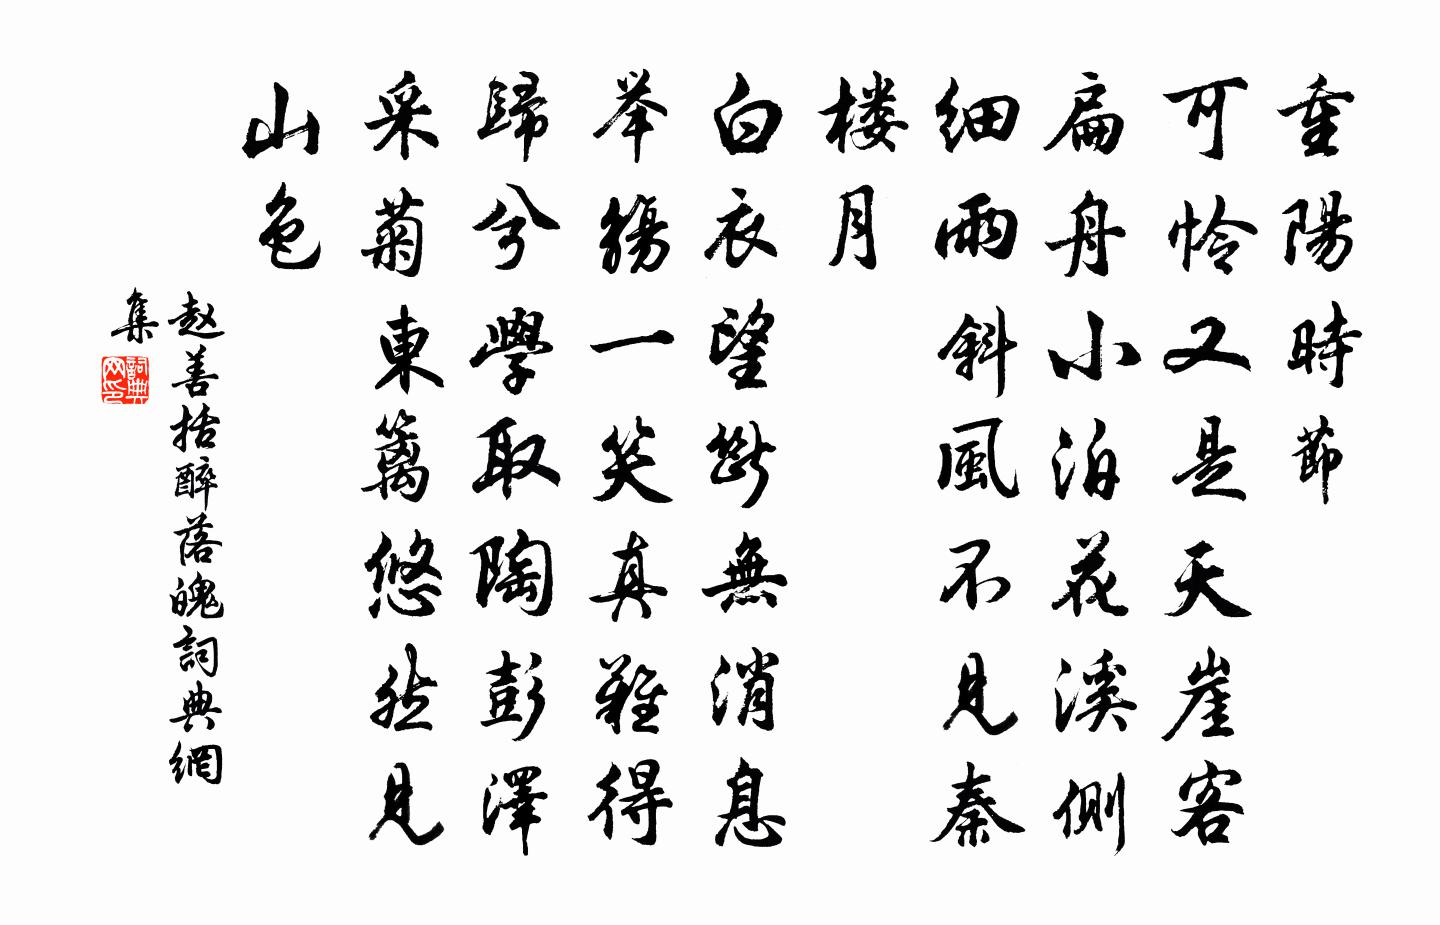 重陽時節
可怜又是天崖客
扁舟小泊花溪側
細雨斜風不見秦
楼月
白衣望斷無消息
举觴一笑真難得
歸兮學取陶彭澤
采菊東籬悠然見
山色
赵善括醉落魄詞典網
集
詞典
网印